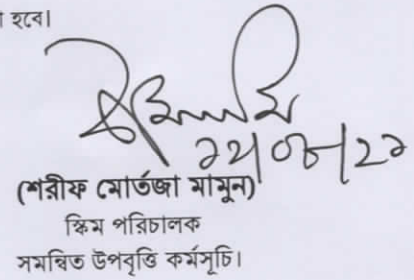 হবে।
(শরীফ মোর্তজা মামুন)
স্কিম পরিচালক
সমন্বিত উপবৃত্তি কর্মসূচি।